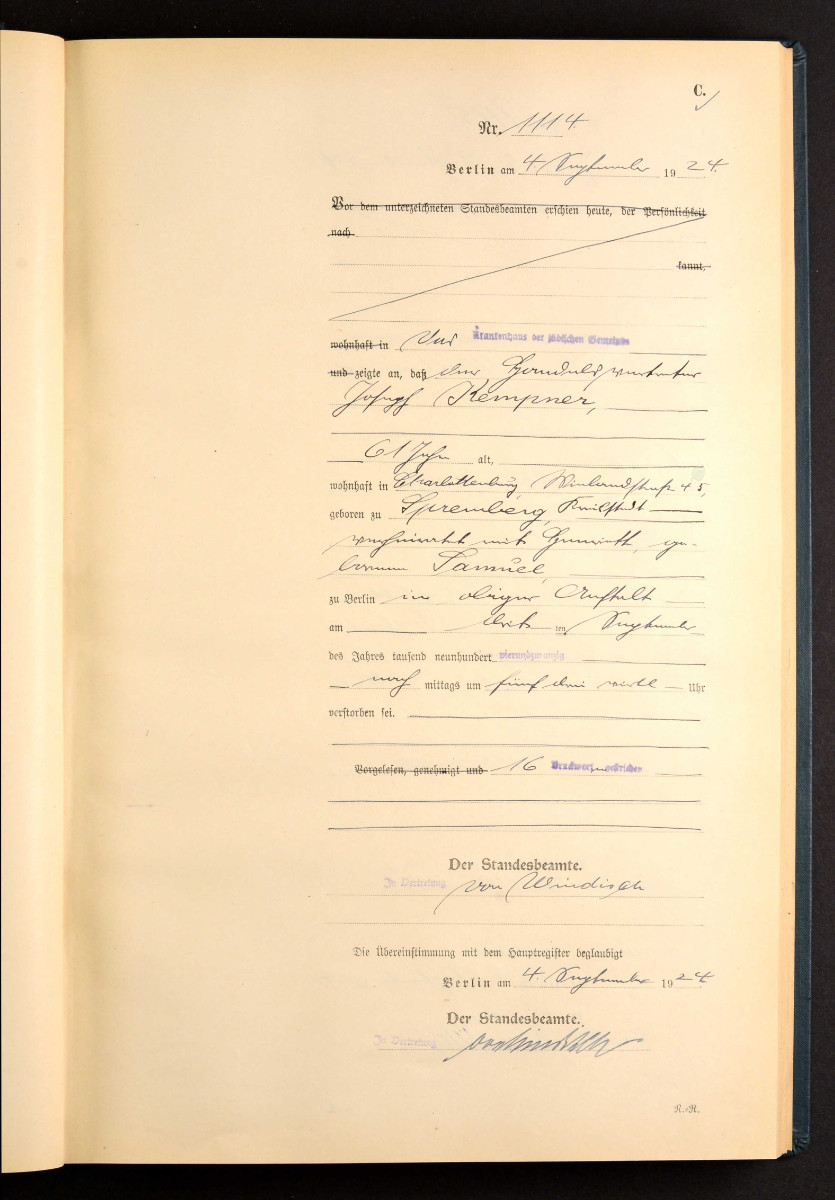 C.
Nr. 1114
Berlin am 4. September 1924.
Vor dem unterzeichneten Standesbeamten erschien heute, der Persönlichkeit
nach
kannt,
wohnhaft in Das Krankenhaus der jüdischen Gemeinde
und zeigte an, daß der Handelsvertreter
Joseph Kempner,
61 Jahre alt,
wohnhaft in Charlottenburg, 45,
geboren zu Spremberg,
verheiratet mit ge-
borenen Samuel,
zu Berlin in obiger Anstalt
am dritten September
des Jahres tausend neunhundert vierundzwanzig
nach mittags um fünf drei viertel Uhr
verstorben sei.
Vorgelesen, genehmigt und 16 Druckworte gestrichen
Der Standesbeamte.
In Vertretung von Windisch
Die Übereinstimmung mit dem Hauptregister beglaubigt
Berlin am 4. September 1924
Der Standesbeamte.
In Vertretung von Windisch